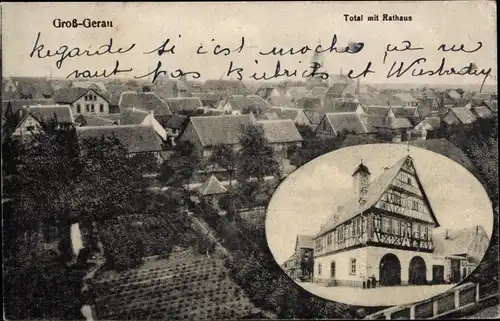 Groß-Gerau
Total mit Rathaus
Regarde si c'est moche ça ne
vaut pas Biebrich et Wiesbaden